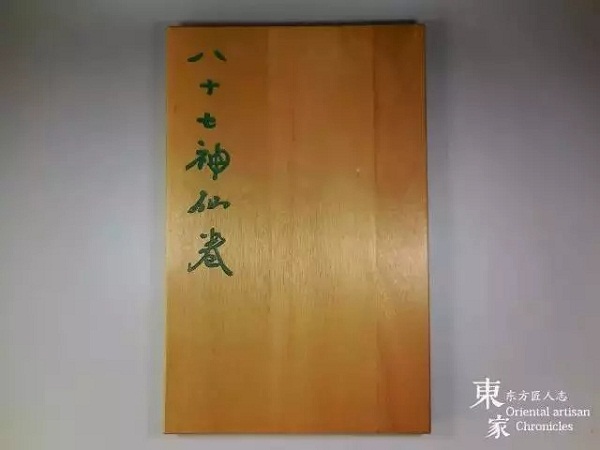 八十七神仙卷
東家
东方匠人志
Oriental artisan
Chronicles